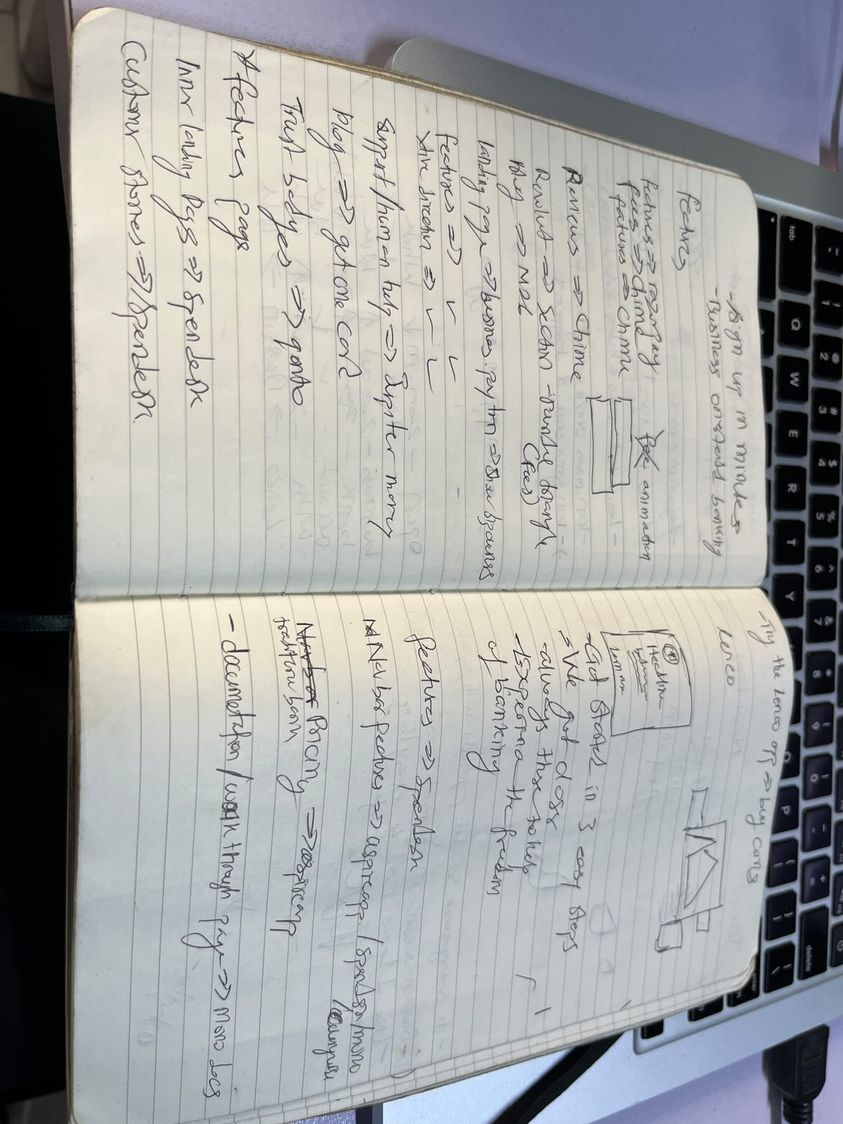 - Sign up in minutes
- Business oriented banking
features
features => razorpay
fees => chime
features => chime
animation
Reviews => Chime
Revolut => section -
(fees)
Blog =>
landing page => business paytm => show business
features => ✓ ✓
=> ✓ ✓
Support/human help => Jupiter money
blog => get one card
Trust badges => qonto
* features page
Inner landing Pags => Spendesk
Customer stories => Spendesk
- Try the Lenco app => buy coins
Lenco
Headline
- Get Started in 3 easy steps
- We
- always there to help
- Experience the freedom
of banking
features => Spendesk
Nav bar features => aspireapp / Spendesk/mono
Pricing => aspireapp
- documentation/walkthrough page => Mono docs